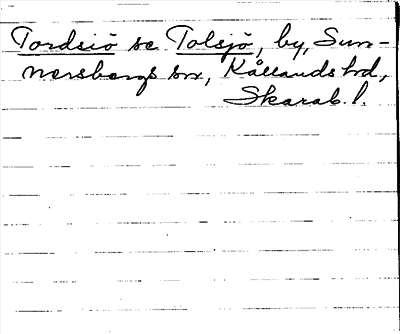 Tordsiö se Tolsjö, by, Sun-
nersbergs sn, Kållands hd,
Skarab. l.